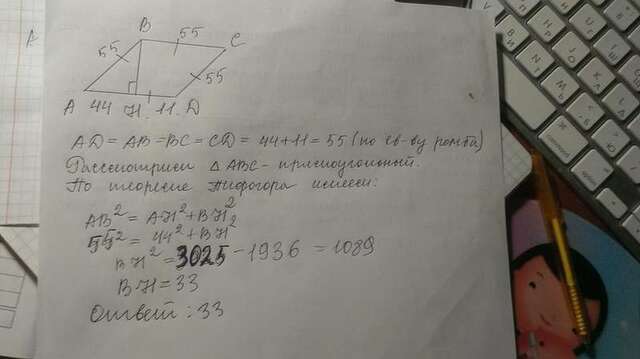 A
B
55
55
C
55
A 44 H 11 D
AD = AB = BC = CD = 44+11 = 55 (по св-ву ромба)
Рассмотрим △ ABC - прямоугольный.
По теореме Пифагора имеем:
AB² = AH² + BH²
55² = 44² + BH²
BH² = 3025 - 1936 = 1089
BH = 33
Ответ: 33